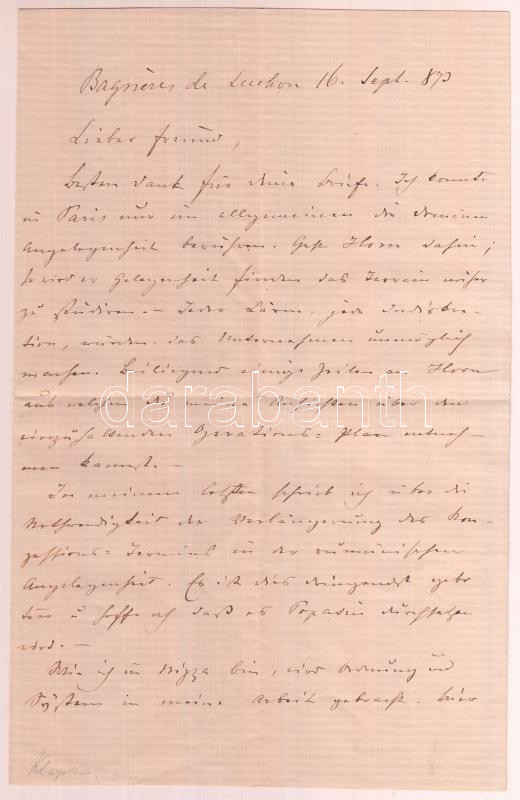 Bagnères de Luchon 16. Sept. 873
Lieber Freund,
Besten Dank für deine Briefe. Ich konnte
in Paris nur im allgemeinen die
Angelegenheit berühren. Geht Horn dahin;
so wird er Gelegenheit finden das Terrain näher
zu studiren – Jeder Lärm, jede Indiskre-
tion, würden das Unternehmen unmöglich
machen. Beiliegend einige Zeilen an Horn
aus welchen du meine Ansichten über den
einzuhaltenden Operations= Plan entneh-
men kannst. –
In meinem letzten schrieb ich über die
Nothwendigkeit der Verlängerung des Kon-
zessions= Termins in der rumänischen
Angelegenheit. Es ist dies dringendst gebo
ten u hoffe ich daß es Popasin durchsetzen
wird. –
Wie ich in Nizza bin, wird Ordnung und
System in meine Arbeit gebracht. Hier
Klapka
darabanth